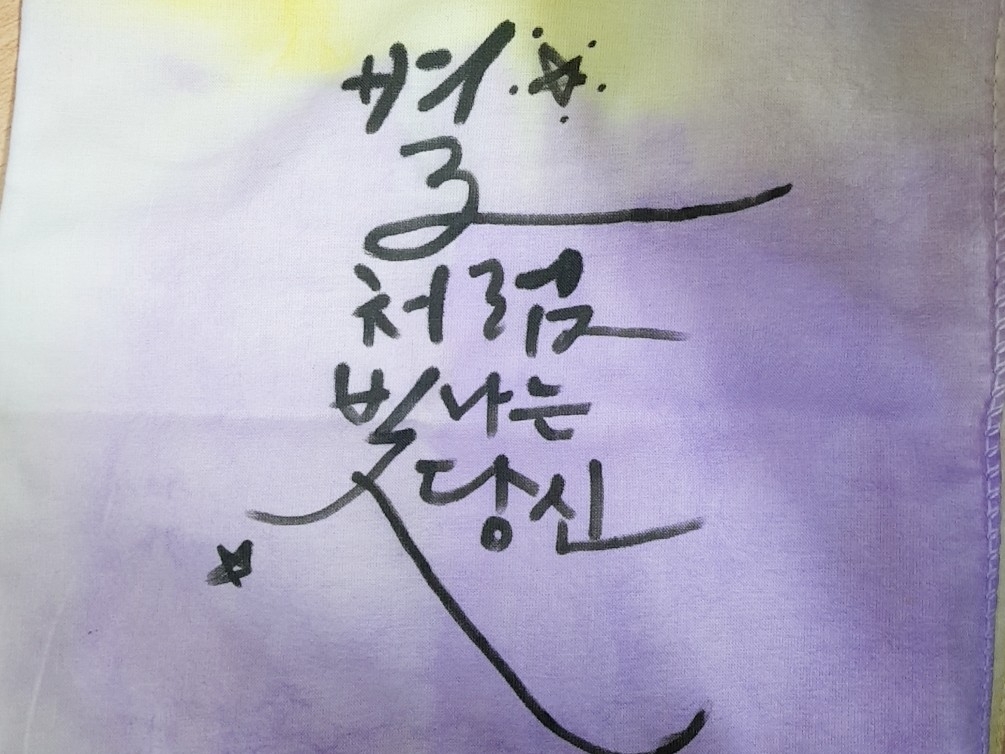 별
처럼
빛나는
당신